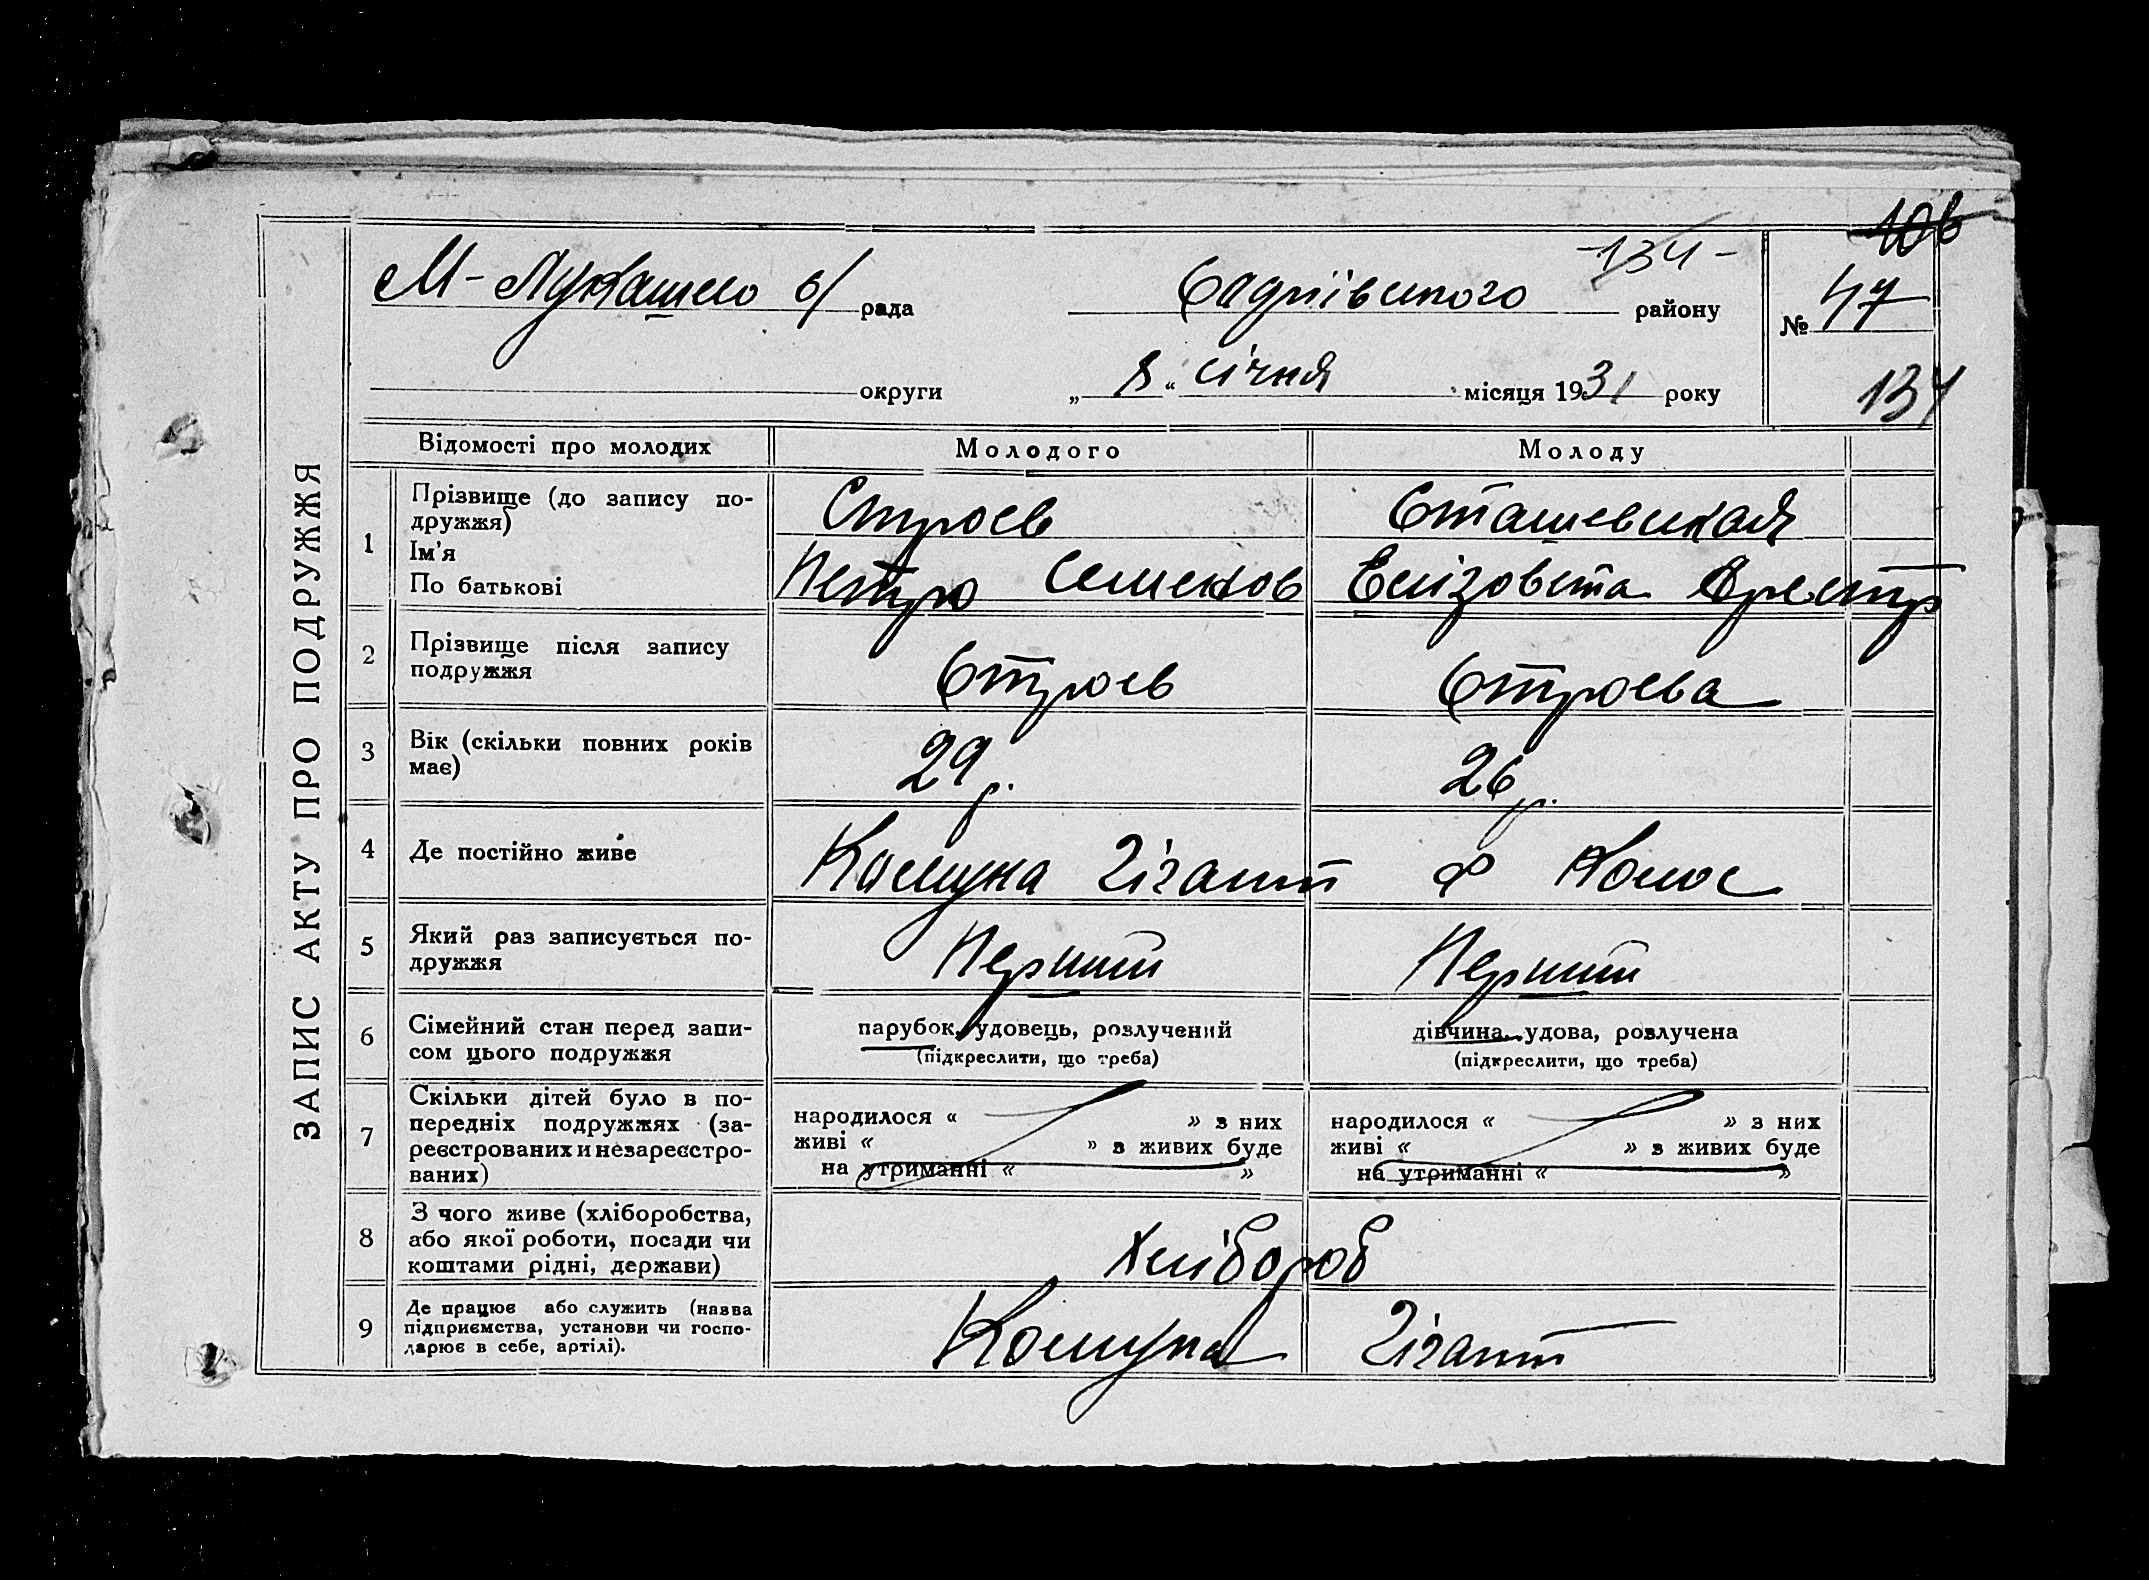 106
-134-
М-Лукашево с/ рада
района
№ 47
округи
„ 8 “ січня місяця 1931 року
134
ЗАПИС АКТУ ПРО ПОДРУЖЖЯ
Відомості про молодих Молодого Молоду
1 Прізвище (до запису по-
дружжя)
Строєв Сташевская
Ім'я
По батькові
Петро Семенов Елізовета
2 Прізвище після запису
подружжя
Строєв Строєва
3 Вік (скільки повних років
має)
29 р. 26 р.
4 Де постійно живе Комуна Гігант Колос
5 Який раз записується по-
дружжя
Перший Перший
6 Сімейний стан перед запи-
сом цього подружжя
парубок, удовець, розлучений
(підкреслити, що треба)
дівчина, удова, розлучена
(підкреслити, що треба)
7 Скільки дітей було в по-
передніх подружжях (за-
реєстрованих и незареєстро-
ваних)
народилося « » з них
живі « » з живих буде
на утриманні « »
народилося « » з них
живі « » з живих буде
на утриманні « »
8 З чого живе (хліборобства,
або якої роботи, посади чи
коштами рідні, держави)
Хлібороб
9 Де працює або служить (назва
підприємства, установи чи госпо-
дарює в себе, артілі).
Комуна Гігант